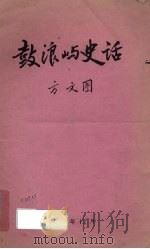 鼓浪屿史话
方文图